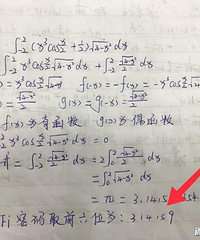 ∫₋₂² (x³cos x/2 + 1/2)√4-x² dx
∫₋₂² x³cos x/2 √4-x² dx + ∫₋₂² √4-x²/2 dx
= x³cos x/2 √4-x² f(-x) = -f(x) = -x³cos x/2 √4-x²
= √4-x²/2 g(x) = g(-x) = √4-x²/2
f(x)为奇函数 g(x)为偶函数
cos x/2 √4-x² dx = 0
= ∫₋₂² √4-x²/2 dx = 2∫₀² √4-x²/2 dx
= ∫₀² √4-x² dx
= π = 3.1415
Fi密码取前六位为: 314159